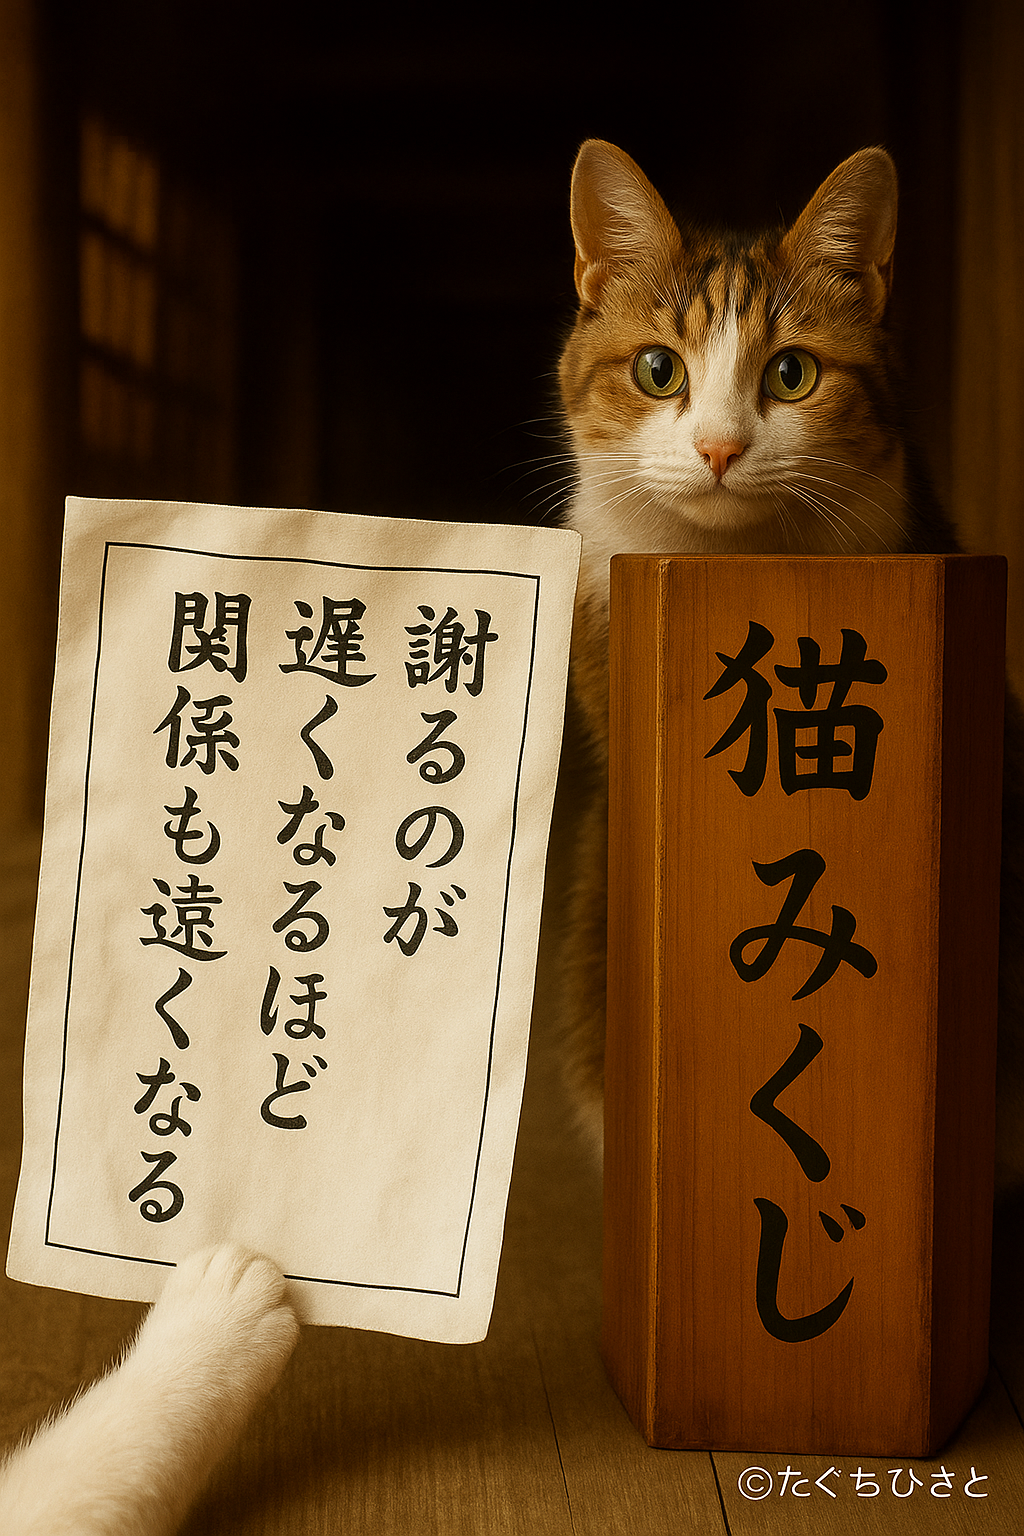 謝るのが
遅くなるほど
関係も遠くなる
猫みくじ
©たぐちひさと